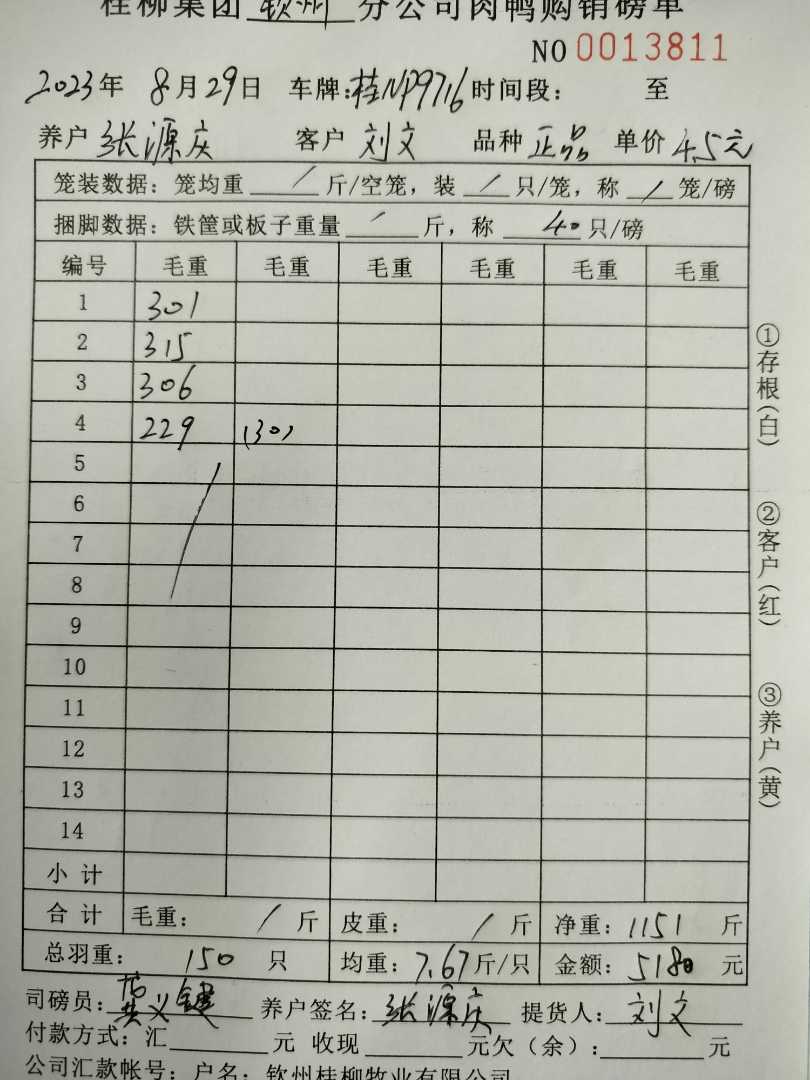 桂柳集团 钦州 分公司肉鸭购销磅单
NO 0013811
2023年 8月29日 车牌:桂NP9716 时间段: 至
养户 张源庆 客户 刘文 品种 正品 单价 4.5元
笼装数据: 笼均重 / 斤/空笼, 装 / 只/笼, 称 / 笼/磅
捆脚数据: 铁筐或板子重量 / 斤, 称 40 只/磅
编号 毛重 毛重 毛重 毛重 毛重 毛重
1 301
2 315
3 306
4 229 (30)
5
6
7
8
9
10
11
12
13
14
小计
合计 毛重: / 斤 皮重: / 斤 净重: 1151 斤
总羽重: 150 只 均重: 7.67斤/只 金额: 5180 元
司磅员: 黄义键 养户签名: 张源庆 提货人: 刘文
付款方式: 汇 元 收现 元欠(余): 元
公司汇款帐号: 户名: 钦州桂柳牧业有限公司
①存根(白)
②客户(红)
③养户(黄)